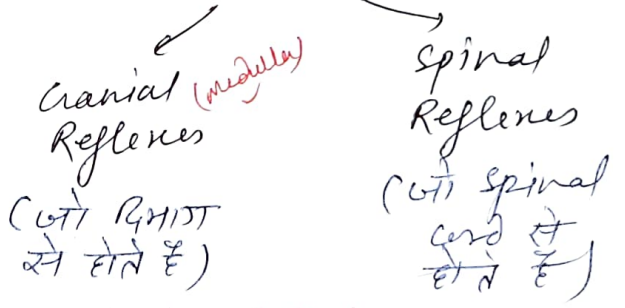 Cranial (medulla)
Reflexes
(जो दिमाग
से होते हैं)
Spinal
Reflexes
(जो spinal
cord से
होते हैं)